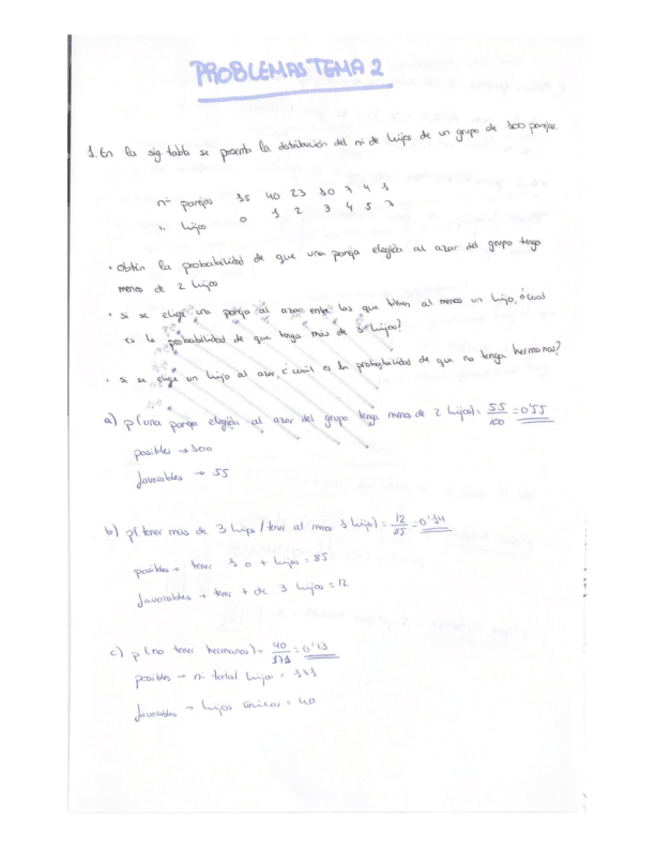 PROBLEMAS TEMA 2
1. En la sig. tabla se presenta la distribución del nº de hijos de un grupo de 100 parejas.
nº parejas 15 40 23 10 7 4 1
" hijos 0 1 2 3 4 5 7
· Obtén la probabilidad de que una pareja elegida al azar del grupo tenga
menos de 2 hijos
· Si se elige una pareja al azar entre las que tienen al menos un hijo, ¿cual
es la probabilidad de que tenga más de 3 hijos?
· Si se elige un hijo al azar, ¿cuál es la probabilidad de que no tenga hermanos?
a) p(una pareja elegida al azar del grupo tenga menos de 2 hijos) = 55/100 = 0'55
posibles → 100
favorables → 55
b) p(tener más de 3 hijos / tener al menos 1 hijo) = 12/85 = 0'14
posibles → tener 1 o + hijos = 85
favorables → tener + de 3 hijos = 12
c) p(no tener hermanos) = 40/171 = 0'23
posibles → nº total hijos = 171
favorables → hijos únicos = 40